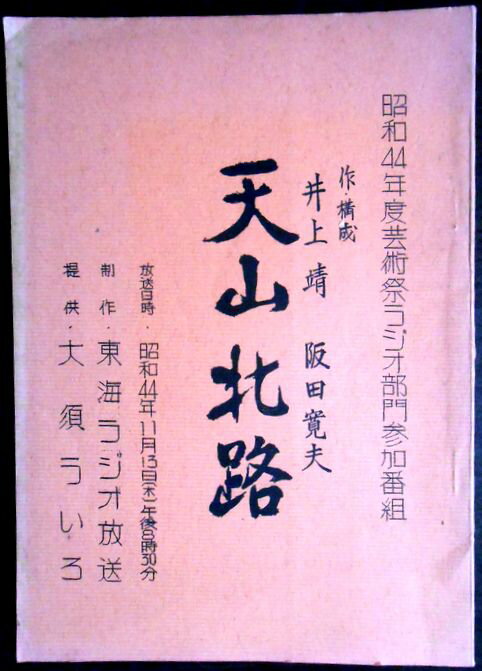 昭和44年度芸術祭ラジオ部門参加番組
作・構成
井上靖 阪田寛夫
天山北路
放送日時・昭和44年11月13日(木)午後8時30分
制作・東海ラジオ放送
提供・大須ういろ